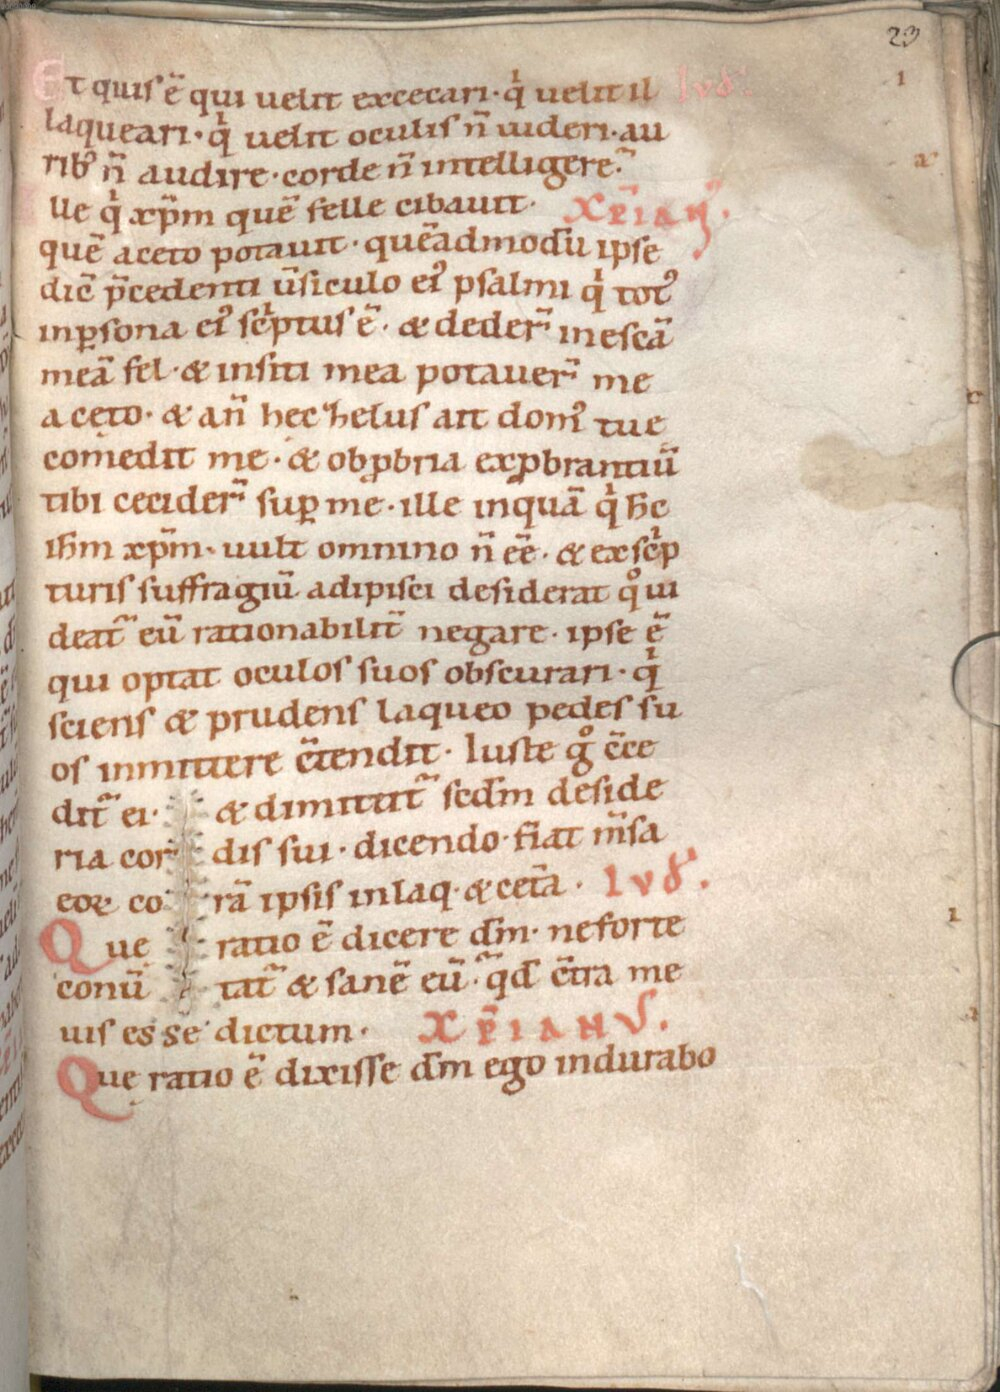 23
Et quis ē qui uelit excecari · qͥ uelit il lvđ.
laqueari · qͥ uelit oculis n̄ uideri · au
rib᾽ n̄ audire · corde n̄ intelligere.
lle qͥ xp̄m quē felle cibauit · XP̄IANꝰ.
quē aceto potauit · quēadmodū ipse
dic̄ p̄cedenti ūsiculo ei᾽ psalmi qͥ tot᾽
inꝑsona ei᾽ scͥptus ē · & deder̄ in escā
meā fel · & insiti mea potauer̄ me
aceto · & an̄ hec helus ait dom᾽ tue
comedit me · & obꝓbria exꝓbrantiū
tibi cecider̄ suꝑ me · ille inquā qͥ hc̄
ihm̄ xp̄m · uult omnino n̄ eē · & ex scͥp
turis suffragiū adipisci desiderat qͦ ui
deat᷑ eū rationabilit̄ negare · ipse ē
qui optat oculos suos obscurari · qͥ
sciens & prudens laqueo pedes su
os inmittere c̄tendit · Iuste gͦ c̄ce
dit᷑ ei · & dimittit᷑ scdm̄ deside
ria cordis sui · dicendo · fiat m̄sa
eoꝝ corā ipsis in laq · & cet̄a · lvđ.
Que ratio ē dicere dm̄ · ne forte
conūtat᷑ & sanē eū · qͣd c̄tra me
uis esse dictum · XP̄IANVS.
Que ratio ē dixisse dm̄ ego indurabo